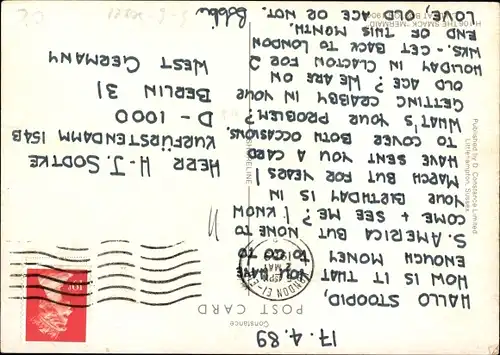 17.4.89
Constance
POST CARD
HALLO STOOPID,
HOW IS IT THAT YOU HAVE
ENOUGH MONEY TO GO TO
S. AMERICA BUT NONE TO
COME + SEE ME? (I KNOW
YOUR BIRTHDAY IS IN
MARCH BUT FOR YEARS I
HAVE SENT YOU A CARD
TO COVER BOTH OCCASIONS.
WHAT'S YOUR PROBLEM?
GETTING CRABBY IN YOUR
OLD AGE? WE ARE ON
HOLIDAY IN CLACTON FOR 2
WKS - GET BACK TO LONDON
END OF THIS MONTH.
LOVE, OLD AGE OR NOT.
Bobbie
THE SMACK "MERMAID"
Published by D. Constance Limited
Littlehampton, Sussex
LONDON
2 MAY
HERR H-J. SODTKE
KURFÜRSTENDAMM 154B
D - 1000
BERLIN 31
WEST GERMANY